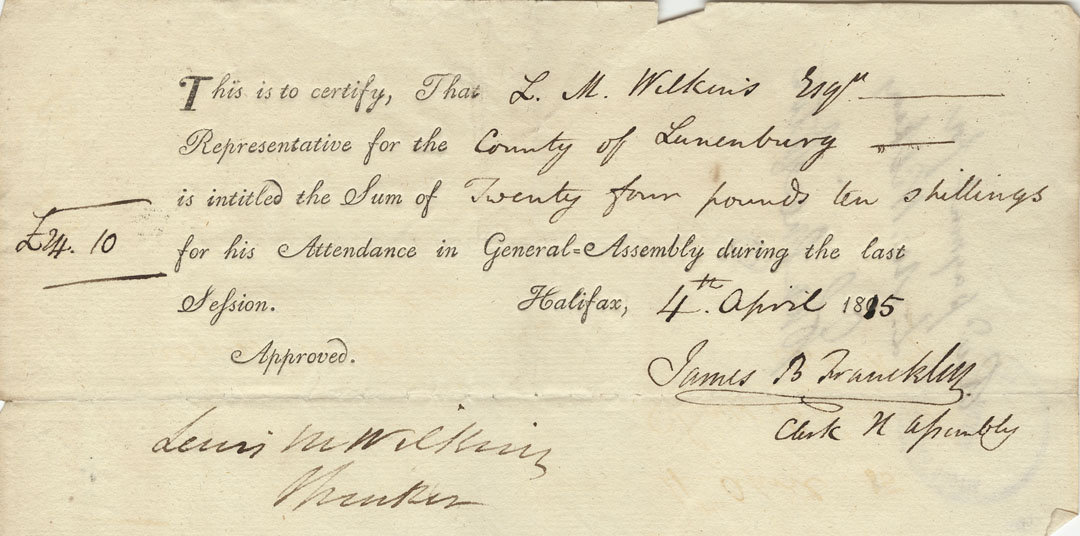 This is to certify, That L. M. Wilkins Esqr
Representative for the County of Lunenburg
is intitled the Sum of Twenty four pounds ten shillings
£24. 10
for his Attendance in General=Assembly during the last
Session. Halifax, 4th. April 1815
Approved.
James B Franklin
Clerk H Assembly
Lewis M Wilkins
Speaker